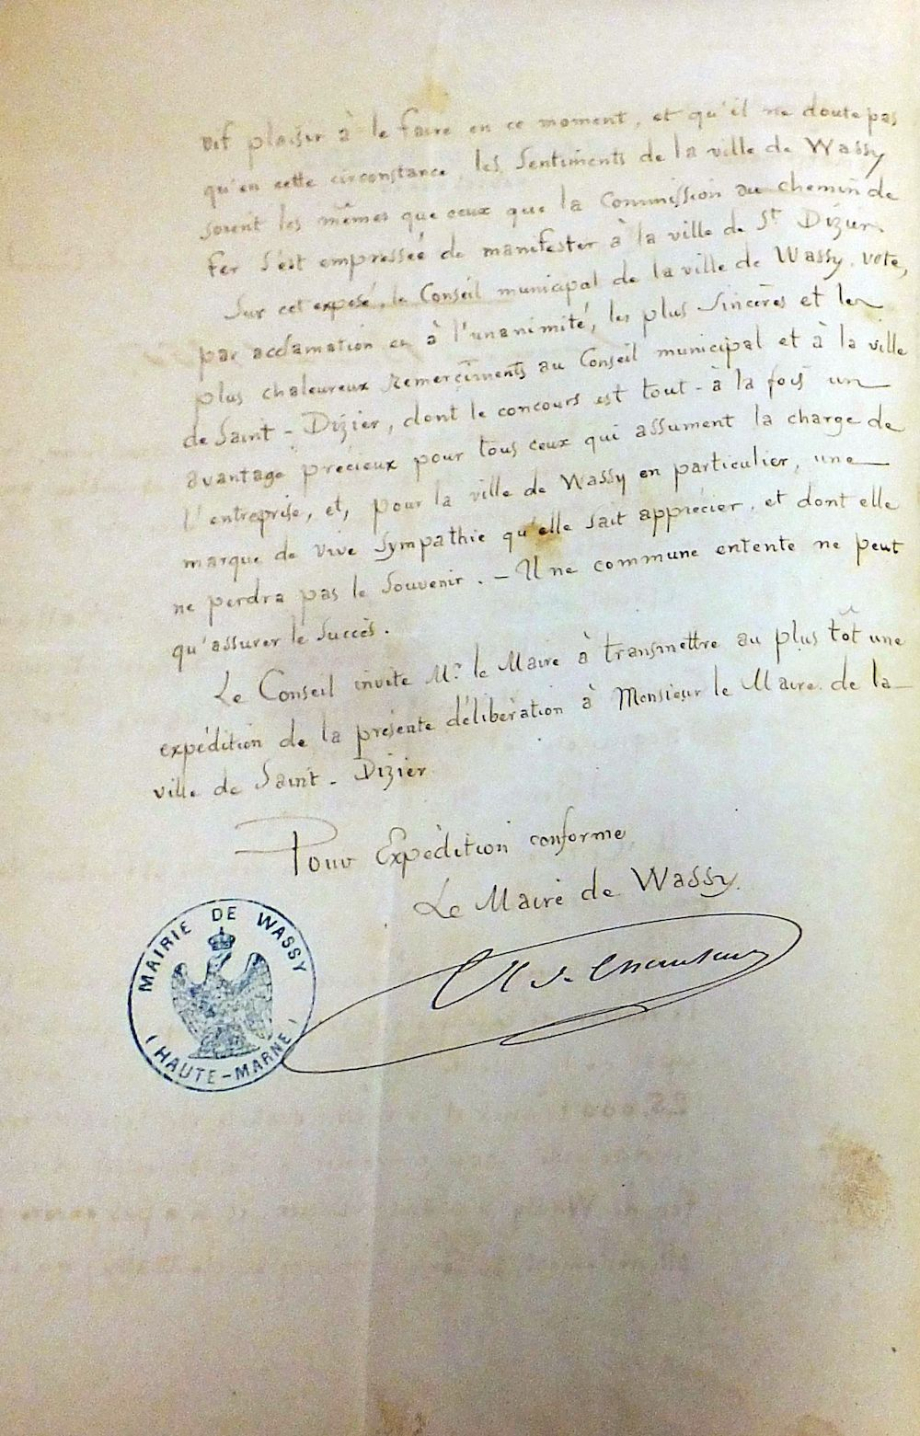 vif plaisir à le faire en ce moment, et qu'il ne doute pas
qu'en cette circonstance, les Sentiments de la ville de Wassy
soient les mêmes que ceux que la Commission du chemin de
fer s'est empressée de manifester à la ville de St Dizier.
Sur cet exposé, le Conseil municipal de la ville de Wassy, vote,
par acclamation et à l'unanimité, les plus Sincères et les
plus chaleureux remercîments au Conseil municipal et à la ville
de Saint-Dizier, dont le concours est tout-à la fois un
avantage précieux pour tous ceux qui assument la charge de
l'entreprise, et, pour la ville de Wassy en particulier, une
marque de vive Sympathie qu'elle Sait apprécier, et dont elle
ne perdra pas le Souvenir. - Une commune entente ne peut
qu'assurer le Succès.
Le Conseil invite Mr le Maire à transmettre au plus tôt une
expédition de la présente délibération à Monsieur le Maire de la
ville de Saint-Dizier
Pour Expédition conforme,
Le Maire de Wassy.
MAIRIE DE WASSY
(HAUTE-MARNE)